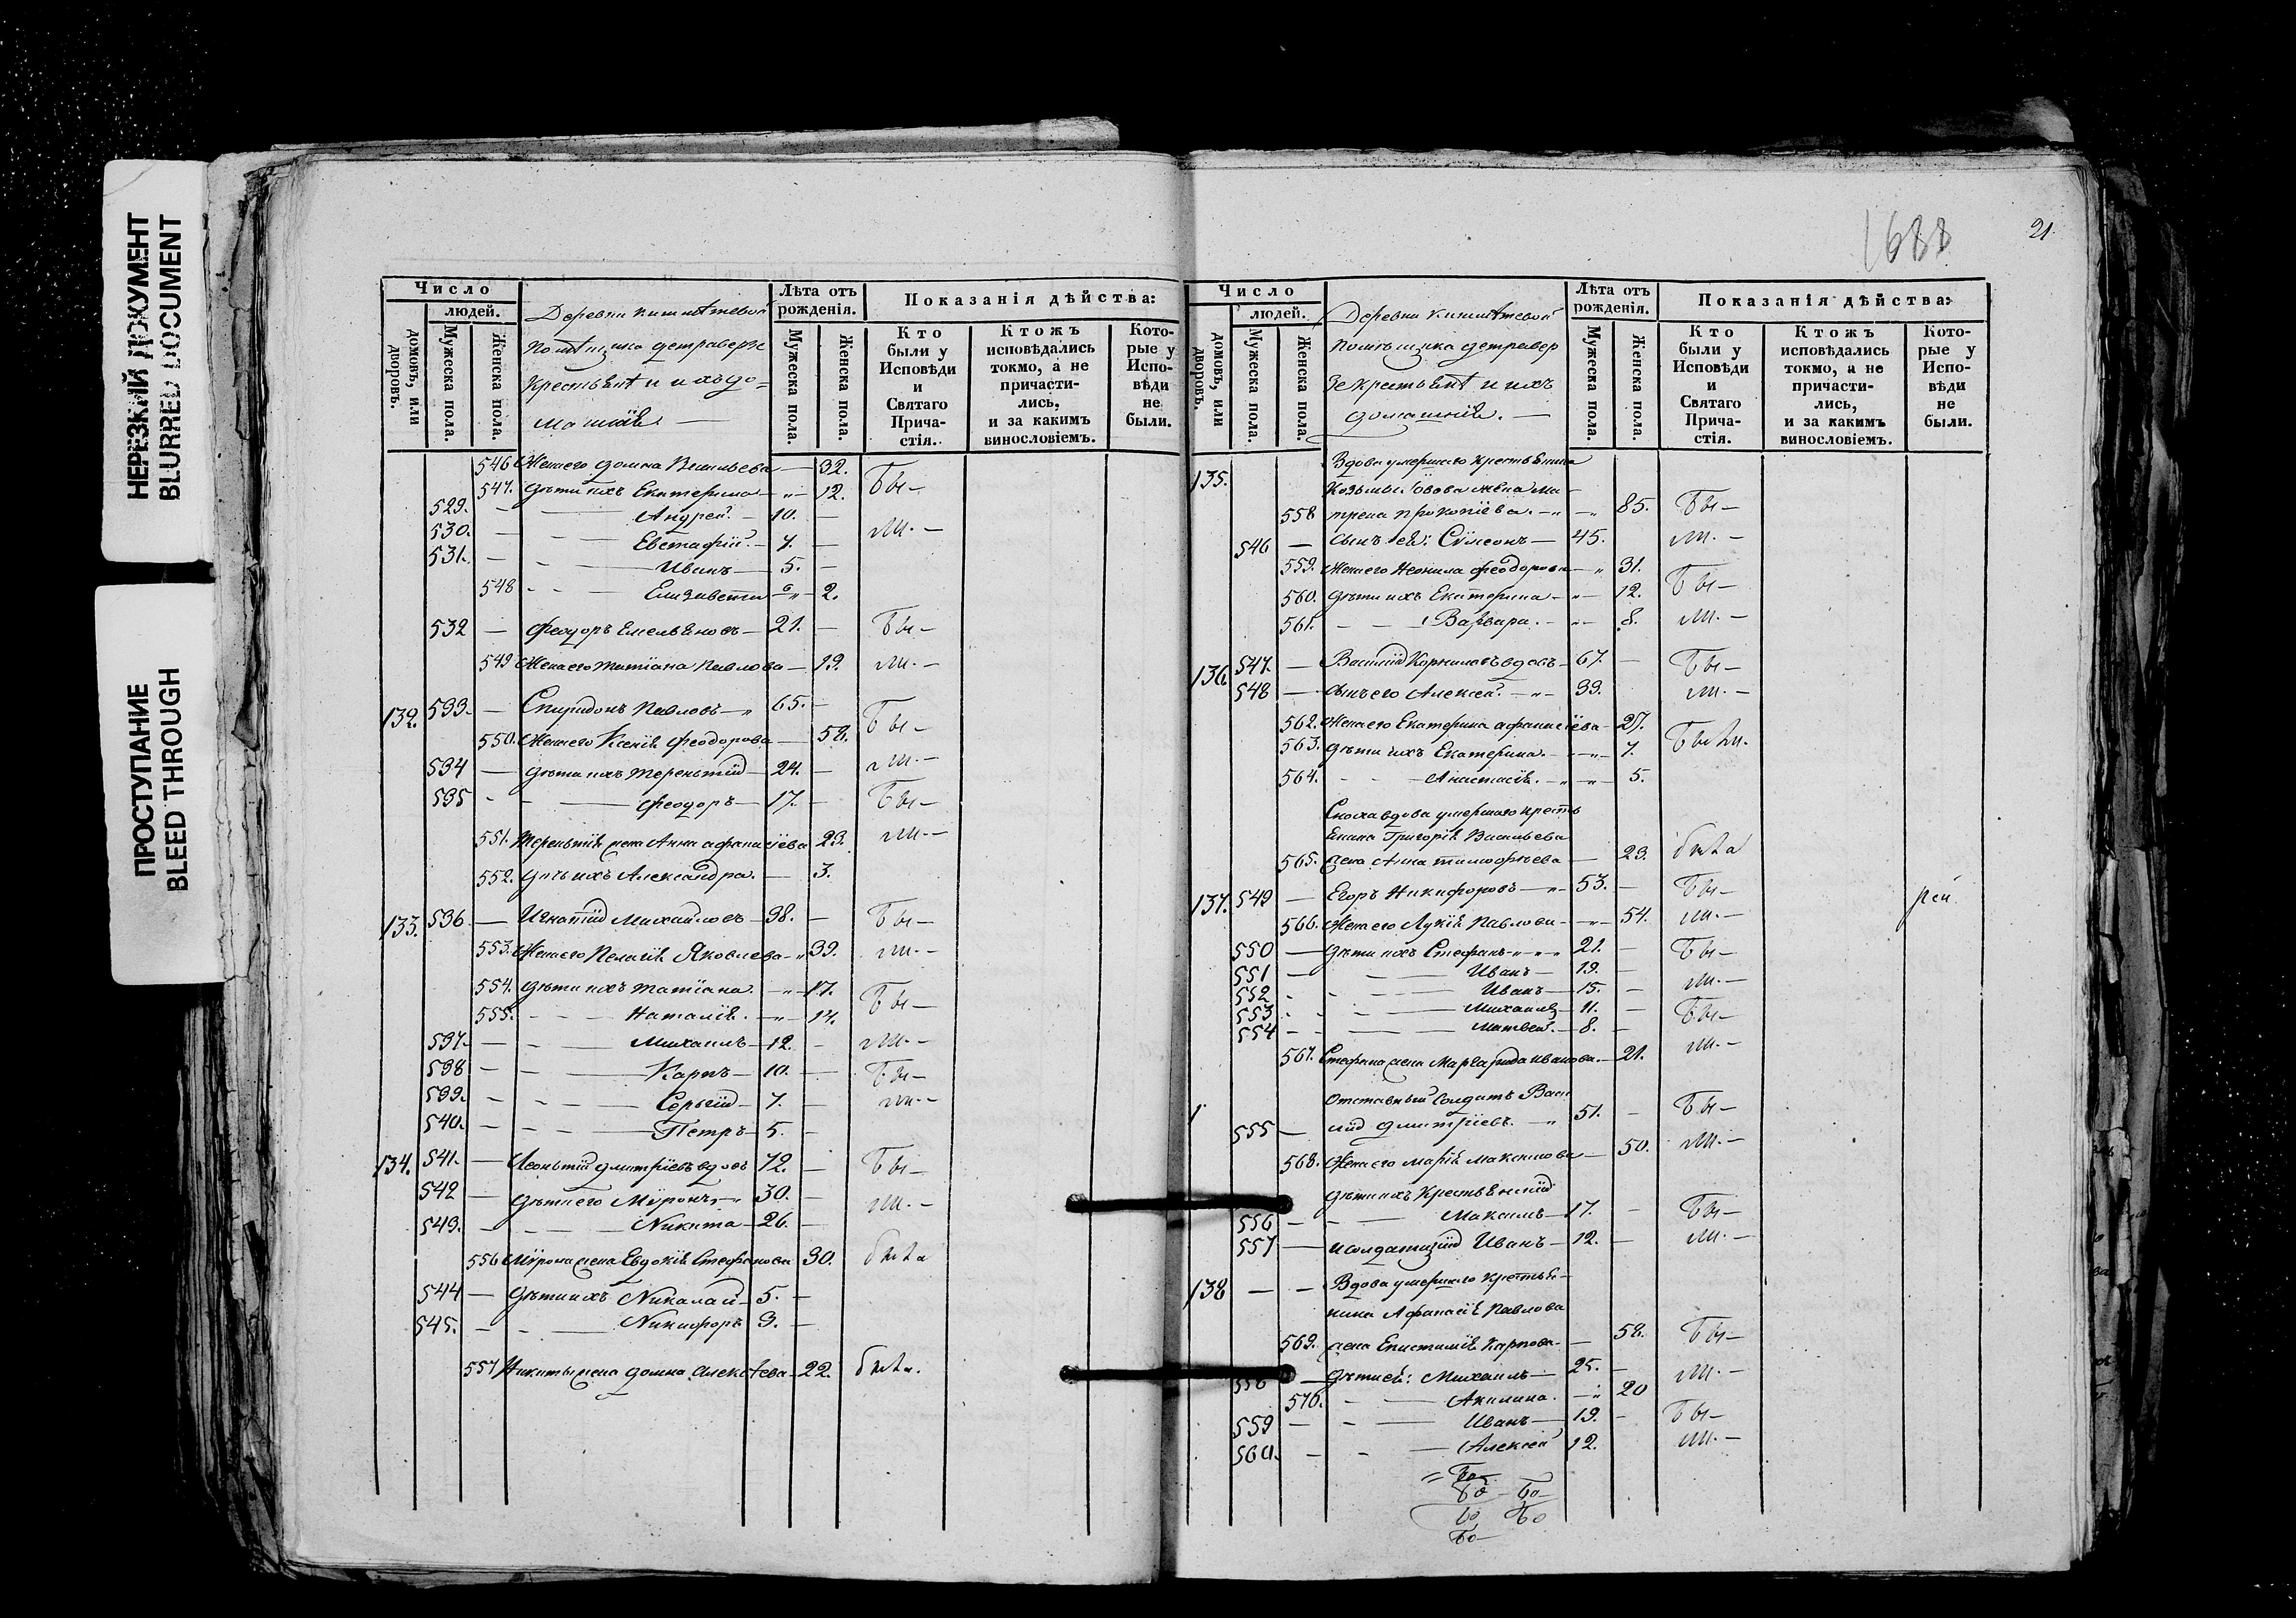 НЕРЕЗКИЙ ДОКУМЕНТ
BLURRED DOCUMENT
ПРОСТУПАНИЕ
BLEED THROUGH
Число
людей.
домовъ, или дворовъ.
Мужеска пола.
Женска пола.
Деревни
крестьяне и ихъ до=
машніе.
Лѣта отъ рожденія.
Мужеска пола.
Женска пола.
Показанія дѣйства:
Кто были у Исповѣди и Святаго Прича-стія.
Ктожъ исповѣдались токмо, а не причасти-лись, и за какимъ винословіемъ.
Кото-рые у Испо-вѣди не были.
546 Жена его Домна Васильева — 32. Бы—
547. Дѣти ихъ Екатерина — 12.
529. — Андрей. — 10. —
530. — Евстафій. — 7. — ли. —
531. — Иванъ — 5. —
548 — Елизавета — 2.
532 — Феодоръ Емельяновъ — 21. — Бы—
549 Жена его Татіана Павлова — 19. ли. —
132. 533. — Спиридонъ Павловъ — 65. — Бы—
550. Жена его Ксенія Феодорова — 58.
534 — Дѣти ихъ Терентій — 24. — ли. —
535 — Феодоръ — 17. — Бы—
551. Терентія жена Анна Афанасіева 23. ли. —
552. Дочь ихъ Александра. — 3.
133. 536. — Игнатій Михайловъ — 38. — Бы—
553. Жена его Пелагія Яковлева — 39. ли. —
554. Дѣти ихъ Татіана. — 17. Бы—
555. — Наталія. — 14.
537. — Михаилъ — 12. — ли. —
538 — Карпъ — 10. — Бы—
539. — Сергій — 7. — ли. —
540. — Петръ — 5. —
134. 541. — Леонтій Дмитріевъ вдовъ 72. — Бы—
542 — Дѣти его Мѵронъ — 30. — ли. —
543. — Никита — 26. —
556 Мѵрона жена Евдокія Стефанова 30. была
544 — Дѣти ихъ Николай — 5. —
545. — Никифоръ 3. —
557 Никиты жена Домна Алексѣева — 22. была.
1688
21
Число
людей.
домовъ, или дворовъ.
Мужеска пола.
Женска пола.
Деревни
крестьяне и ихъ
домашніе. —
Лѣта отъ рожденія.
Мужеска пола.
Женска пола.
Показанія дѣйства:
Кто были у Исповѣди и Святаго Прича-стія.
Ктожъ исповѣдались токмо, а не причасти-лись, и за какимъ винословіемъ.
Кото-рые у Испо-вѣди не были.
135. Вдова умершаго крестьянина
Козьмы жена Ма—
558 трена Прокопіева. — 85. Бы—
546 — Сынъ ея: Сѵмеонъ — 45. ли. —
559. Жена его Неонила Феодорова — 31.
560. Дѣти ихъ Екатерина — 12. Бы—
561. — Варвара. — 8. ли. —
136. 547. — Василій Корниловъ вдовъ — 67. — Бы—
548 — Сынъ его Алексѣй. — 39. ли. —
562. Жена его Екатерина Афанасіева — 27.
563. Дѣти ихъ Екатерина. — 7. Были.
564. — Анастасія. — 5.
Сноха вдова умершаго кресть
янина Григорія Васильева
565. жена Анна Тимофѣева — 23. была
137. 549 — Егоръ Никифоровъ — 53. — Бы—
566. Жена его Лукія Павлова — 54. ли. —
550 — Дѣти ихъ Стефанъ — 21. — Бы—
551 — Иванъ — 19. —
552 — Иванъ — 15. — ли. —
553 — Михаилъ — 11. — Бы—
554 — Матвей. — 8. —
567. Стефана жена Маргарита Иванова. — 21. ли. —
1 Отставный солдатъ Васи
555 — лій Дмитріевъ. — 51. — Бы—
568. Жена его Марія Максимова — 50. ли. —
Дѣти ихъ крестьянскій
556 — Максимъ — 17. — Бы—
557 — и солдатскій Иванъ — 12. — ли. —
138 — — Вдова умершаго крестья—
нина Афанасія Павлова
569. жена Епистимія Карпова — 58. Бы—
558 — Дѣти ея: Михаилъ — 25. — ли. —
570. — Акилина. — 20
559 — Иванъ — 19. — Бы—
560. — Алексѣй 12. ли. —